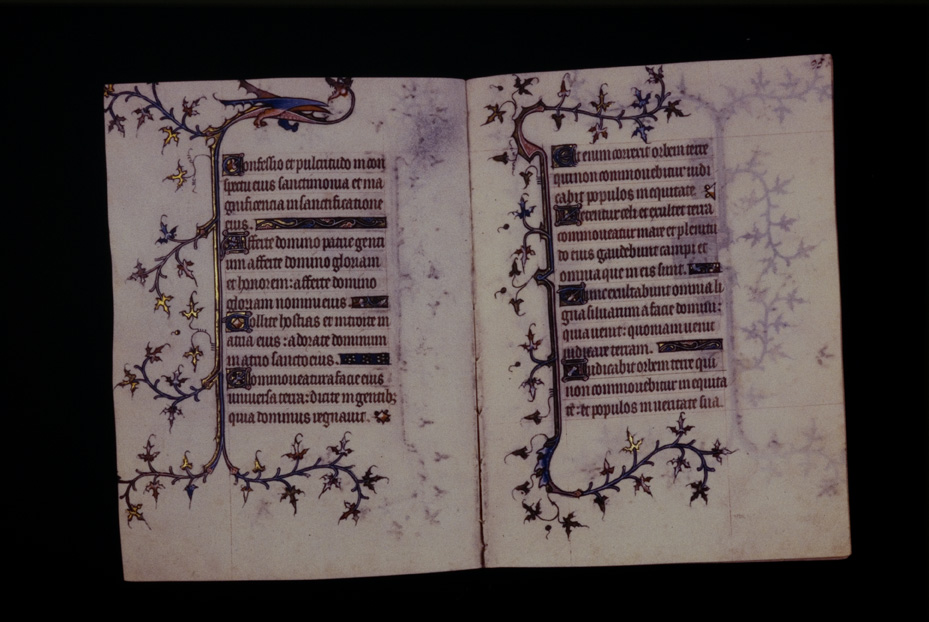 Confessio et pulcritudo in con
spectu eius sanctimonia et ma
gnificencia in sanctificatione
eius.
Afferte domino patrie genti
um afferte domino gloriam
et honorem: afferte domino
gloriam nomini eius.
Tollite hostias et introite in
atria eius: adorate dominum
in atrio sancto eius.
Commoueatur a facie eius
uniuersa terra: dicite in gentib;
quia dominus regnauit.
Etenim correxit orbem terre
qui non commouebitur iudi
cabit populos in equitate.
Letentur celi et exultet terra
commoueatur mare et plenitu
do eius gaudebunt campi et
omnia que in eis sunt.
Tunc exultabunt omnia li
gna siluarum a facie domini:
quia uenit: quoniam uenit
iudicare terram.
Iudicabit orbem terre qui
non commouebitur in equita
te: et populos in ueritate sua.